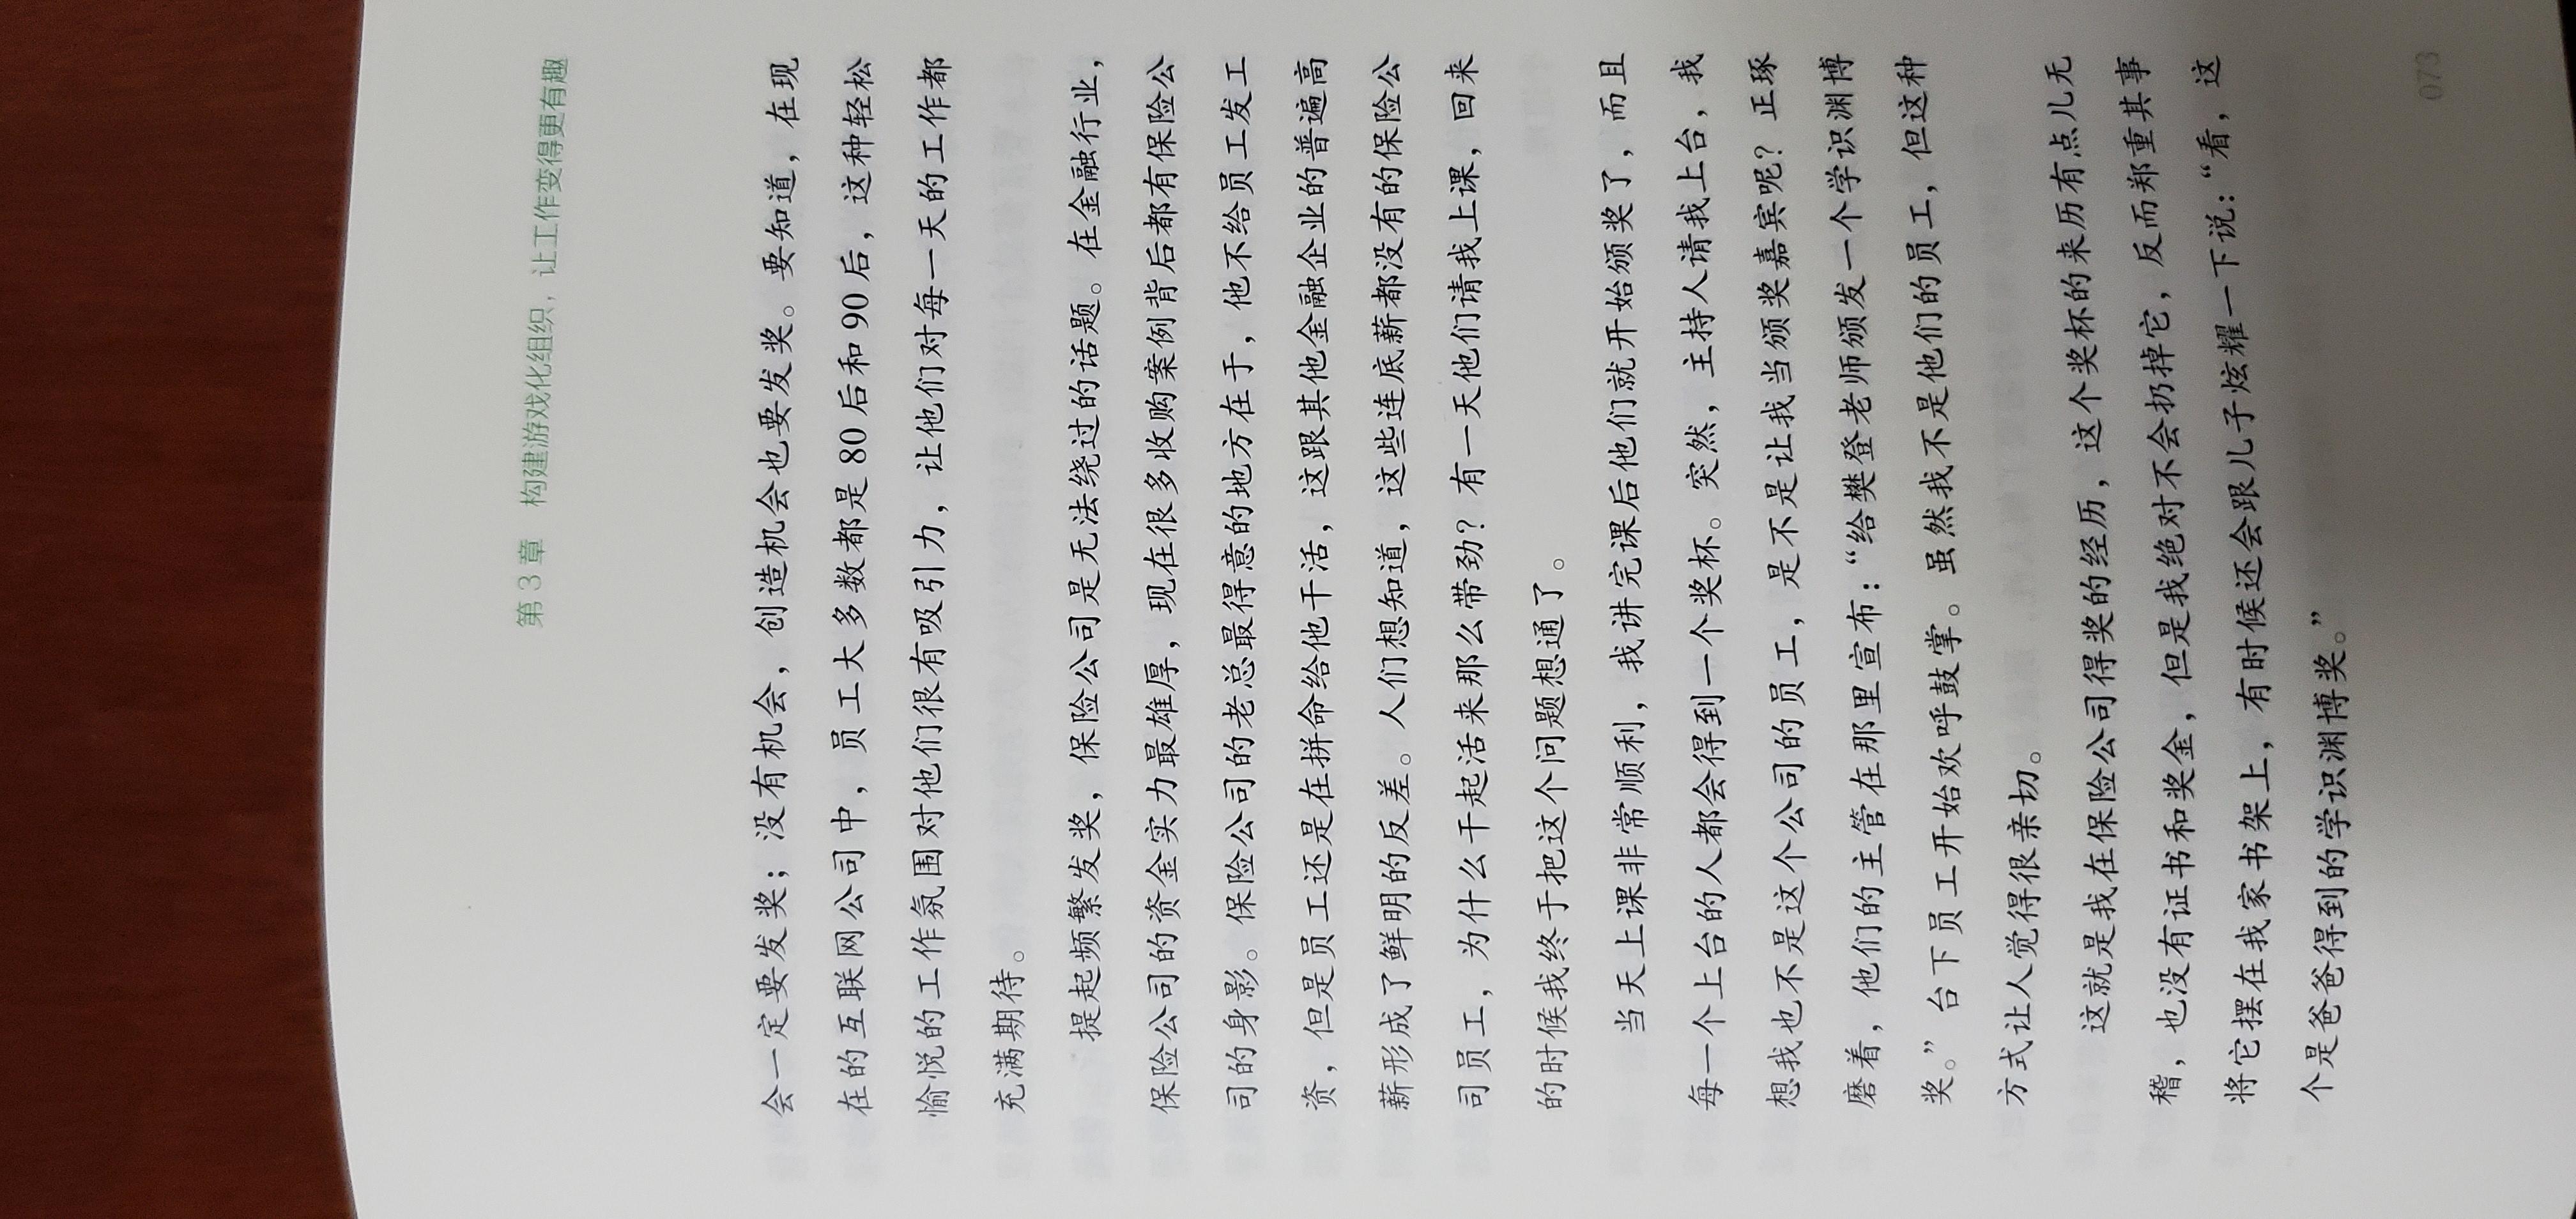 第3章 构建游戏化组织，让工作变得更有趣
会一定要发奖；没有机会，创造机会也要发奖。要知道，在现
在的互联网公司中，员工大多数都是80后和90后，这种轻松
愉悦的工作氛围对他们很有吸引力，让他们对每一天的工作都
充满期待。
提起频繁发奖，保险公司是无法绕过的话题。在金融行业，
保险公司的资金实力最雄厚，现在很多收购案例背后都有保险公
司的身影。保险公司的老总最得意的地方在于，他不给员工发工
资，但是员工还是在拼命给他干活，这跟其他金融企业的普遍高
薪形成了鲜明的反差。人们想知道，这些连底薪都没有的保险公
司员工，为什么干起活来那么带劲？有一天他们请我上课，回来
的时候我终于把这个问题想通了。
当天上课非常顺利，我讲完课后他们就开始颁奖了，而且
每一个上台的人都会得到一个奖杯。突然，主持人请我上台，我
想我也不是这个公司的员工，是不是让我当颁奖嘉宾呢？正琢
磨着，他们的主管在那里宣布：“给樊登老师颁发一个学识渊博
奖。”台下员工开始欢呼鼓掌。虽然我不是他们的员工，但这种
方式让人觉得很亲切。
这就是我在保险公司得奖的经历，这个奖杯的来历有点儿无
稽，也没有证书和奖金，但是我绝对不会扔掉它，反而郑重其事
将它摆在我家书架上，有时候还会跟儿子炫耀一下说：“看，这
个是爸爸得到的学识渊博奖。”
073